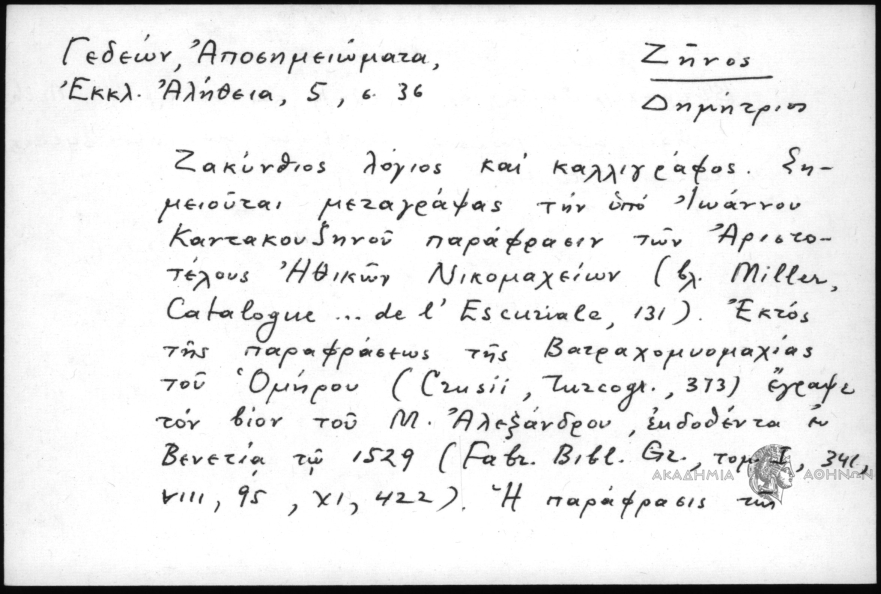 Γεδεών, Ἀποσημειώματα,
Ἐκκλ. Ἀλήθεια, 5, σ. 36
Ζῆνος
Δημήτριος
Ζακύνθιος λόγιος καὶ καλλιγράφος. Ση-
μειοῦται μεταγράψας τήν ὑπό Ἰωάννου
Καντακουζηνοῦ παράφρασιν τῶν Ἀριστο-
τέλους Ἠθικῶν Νικομαχείων (βλ. Miller,
Catalogue ... de l' Escuriale, 131). Ἐκτός
τῆς παραφράσεως τῆς Βατραχομυομαχίας
τοῦ Ὁμήρου (Crusii, Turcogr., 373) ἔγραψε
τόν βίον τοῦ Μ. Ἀλεξάνδρου, ἐκδοθέντα ἐν
Βενετία τῷ 1529 (Fabr. Bibl. Gr., τομ. I, 341,
VIII, 95, XI, 422). Ἡ παράφρασις τῆς
ΑΚΑΔΗΜΙΑ ΑΘΗΝΩΝ